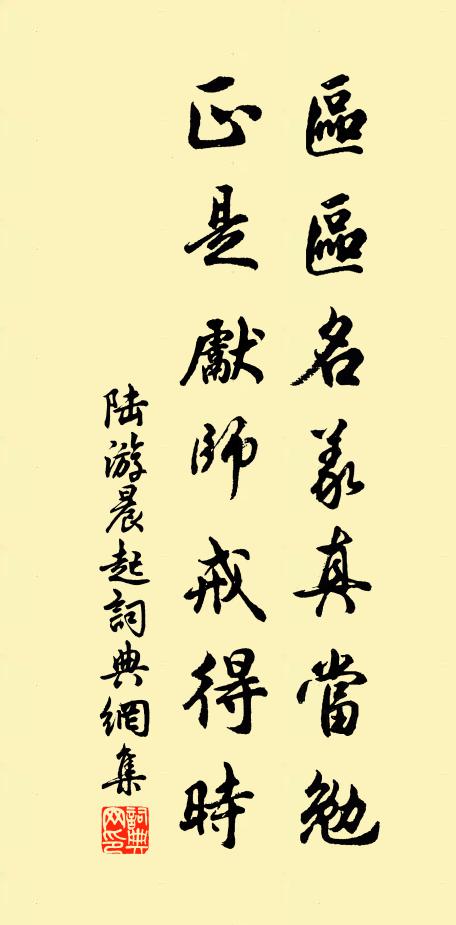 區區名義真當勉
正是獻師戒得時
陸游晨起詞典網集
詞典網印